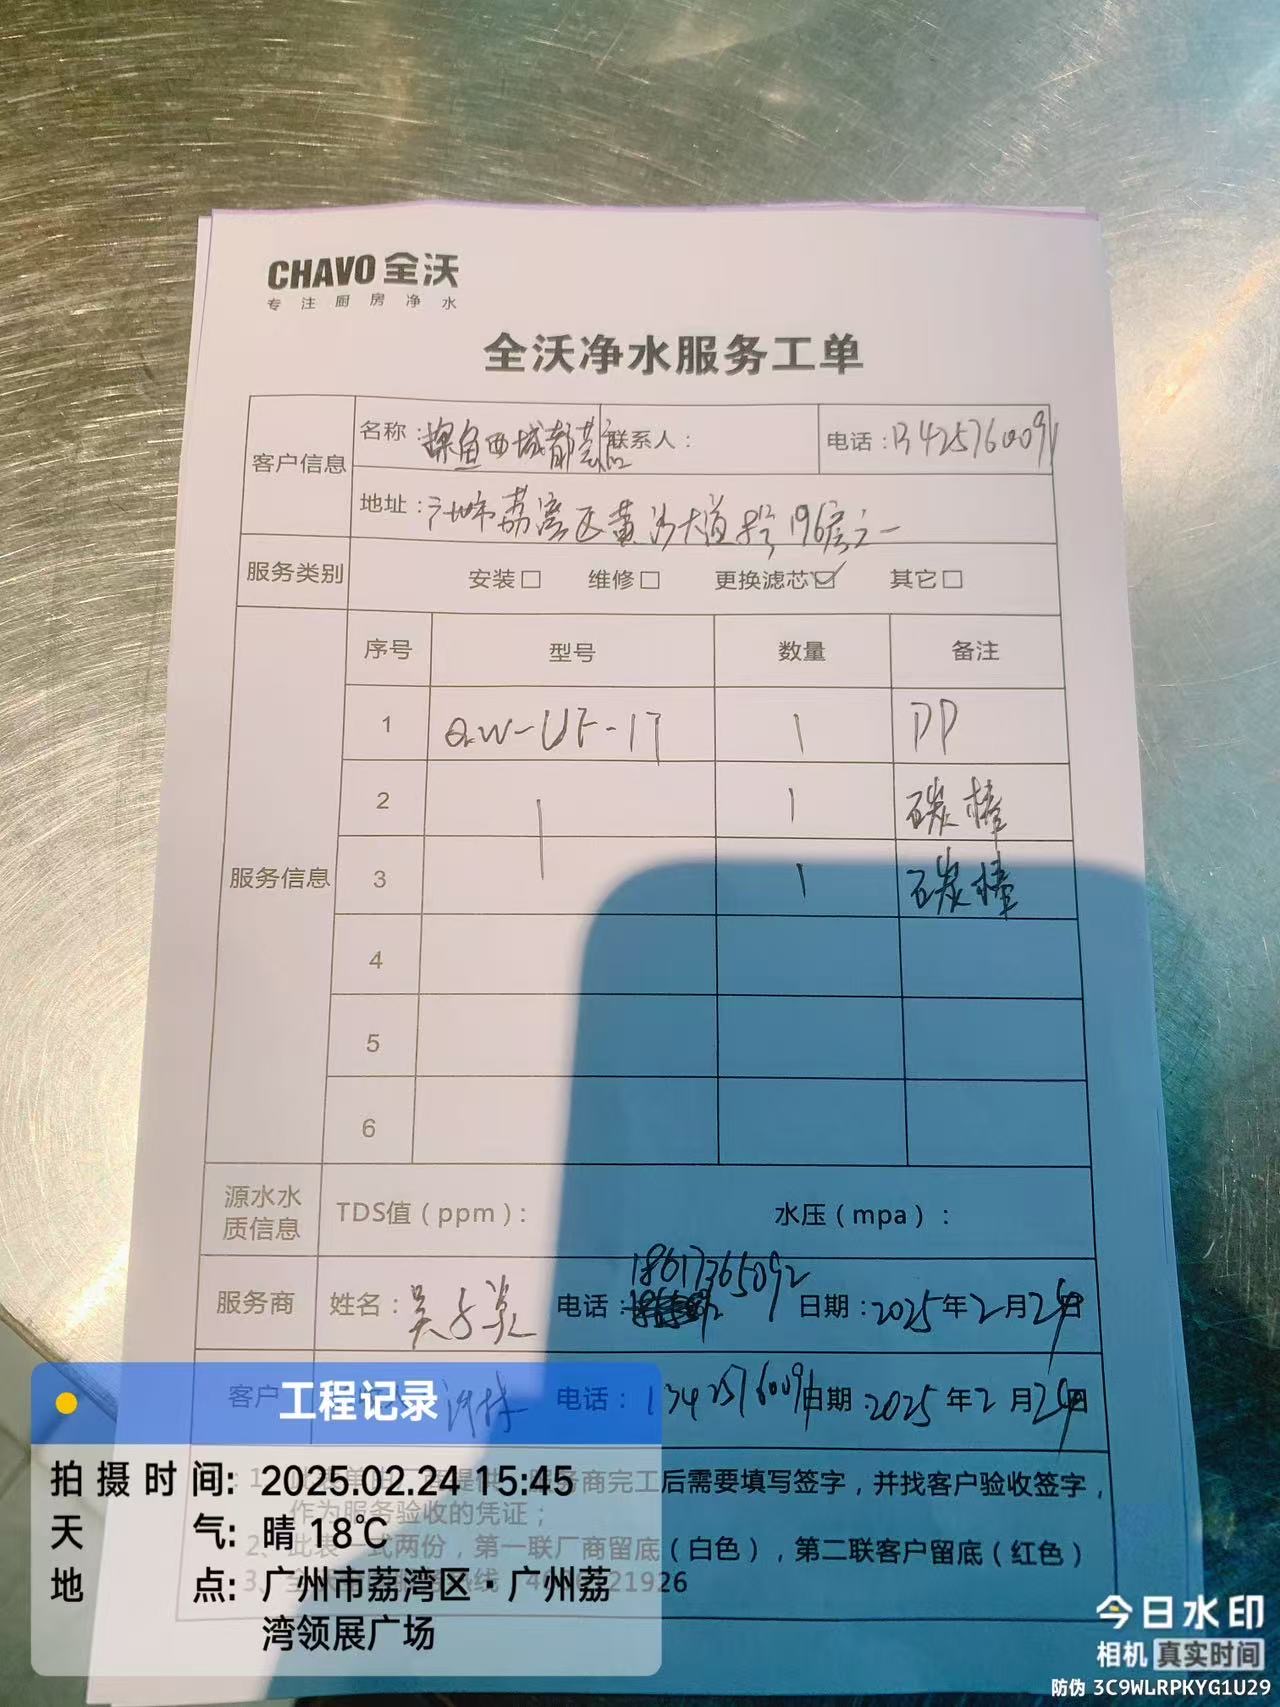 CHAVO 全沃
专注厨房净水
全沃净水服务工单
客户信息
名称：探鱼西城都荟店
联系人：
电话：13425760091
地址：广州市荔湾区黄沙大道 196房之一
服务类别
安装□ 维修□ 更换滤芯☑ 其它□
服务信息
序号 型号 数量 备注
1 QW-UF-17 1 PP
2 1 碳棒
3 1 碳棒
4
5
6
源水水质信息
TDS值（ppm）： 水压（mpa）：
18617365092
服务商 姓名：吴 电话： 日期：2025年2月24日
客户 电话：13425760091 日期：2025年2月24日
服务商完工后需要填写签字，并找客户验收签字，
作为服务验收的凭证；
2、此表一式两份，第一联厂商留底（白色），第二联客户留底（红色）
3、全 21926
工程记录
拍摄时间：2025.02.24 15:45
天气：晴 18℃
地点：广州市荔湾区·广州荔
湾领展广场
今日水印
相机 真实时间
防伪 3C9WLRPKYG1U29